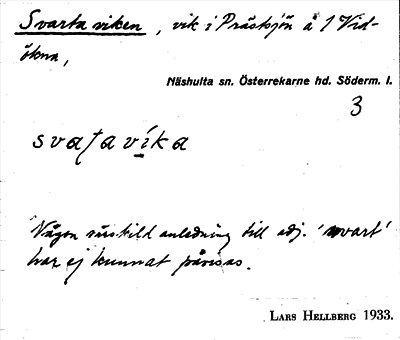 Svarta viken, vik i Prästsjön å 1 Vid-
ökna,
Näshulta sn. Österrekarne hd. Söderm. l.
3
svaṭavíka
Någon särskild anledning till adj. 'svart'
har ej kunnat påvisas.
LARS HELLBERG 1933.